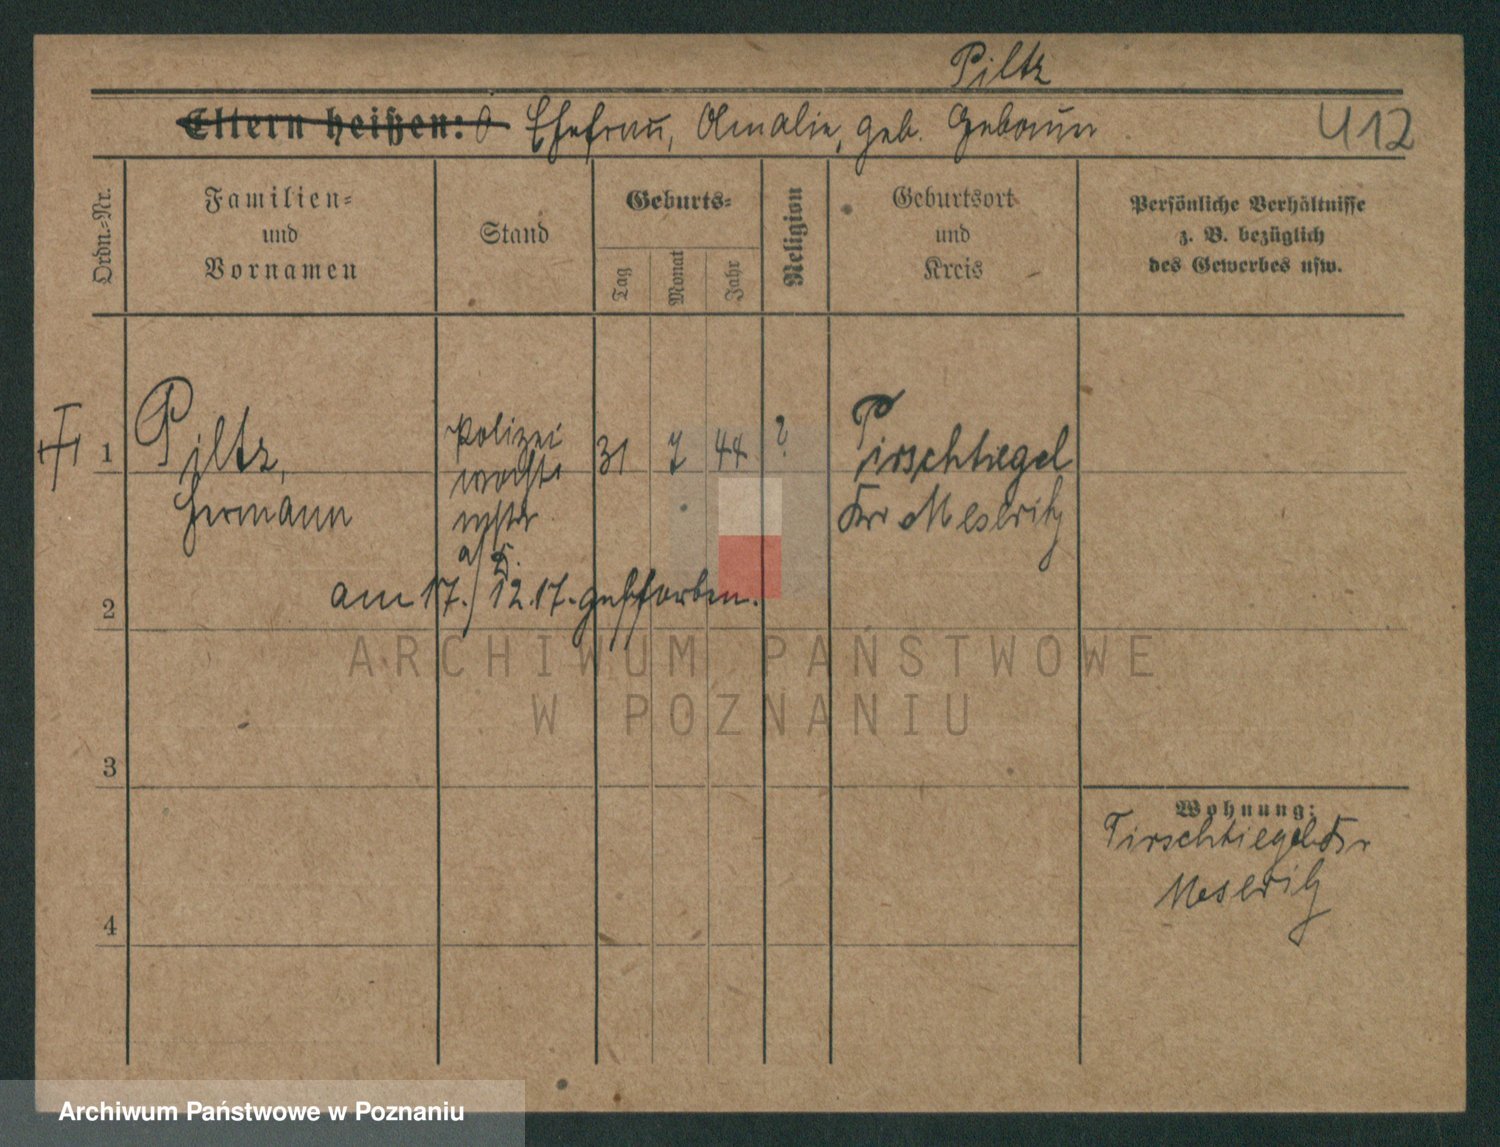 Piltz
Eltern heißen: Ehefrau, Amalie, geb. Gebauer
412
Ordn.-Nr.
Familien-
und
Vornamen
Stand
Geburts-
Tag
Monat
Jahr
Religion
Geburtsort
und
Kreis
Persönliche Verhältnisse
z. B. bezüglich
des Gewerbes usw.
1
Piltz,
Hermann
Polizei
wacht
mstr
a/D.
31
7
44
?
Tirschtiegel
Kr Meseritz
am 17. 12. 17. gestorben.
2
ARCHIWUM PAŃSTWOWE
W POZNANIU
3
Wohnung:
Tirschtiegel Kr
Meseritz
4
Archiwum Państwowe w Poznaniu